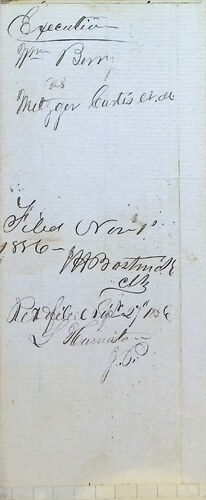 Execution
Wm Berry
vs
Metzger Curtis et al
Filed Nov 1st
1856 –
Bostwick
Clk
Ret & filed Sept 27th 1856
J.P.